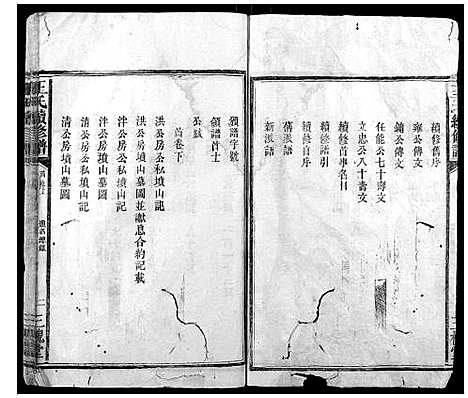 續修舊序
雍公傳文
鏑公傳文
任能公七十壽文
立忠公八十壽文
續修首事名目
續修譜引
續修首序
舊派譜
新派譜
領譜字號
領譜首士
公馱
首卷下
洪公房公私墳山記
洪公房墳山墓圖並獻息合約記載
泮公房公私墳山記
泮公房墳山墓圖
清公房公私墳山記
清公房墳山墓圖
王氏續修譜
三槐堂